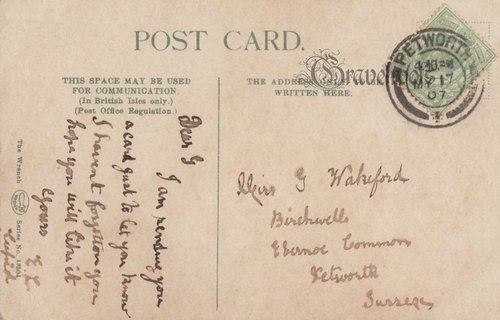 POST CARD.
THIS SPACE MAY BE USED
FOR COMMUNICATION.
(In British Isles only.)
(Post Office Regulation.)
THE ADDRESS ONLY
WRITTEN HERE.
PETWORTH
17
07
Dear G
I am sending you
a card just to let you know
I havent forgotten you
hope you will like it
Yours
Miss G Wakeford
Birchwells
Ebernoe Common
Petworth
Sussex
The Wrench
Series No.